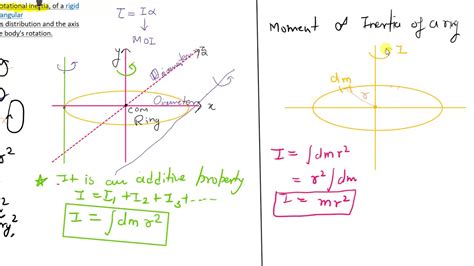 otational inertia, of a rigid
angular
s distribution and the axis
e body's rotation.
τ = Iα
MOI
y
z
Diameter
Diameter
x
com
Ring
* It is an additive property
I = I1 + I2 + I3 + ----
I = ∫dm r²
r²
Moment of Inertia of a ring
I
dm
r
I = ∫dm r²
= r² ∫dm
I = mr²